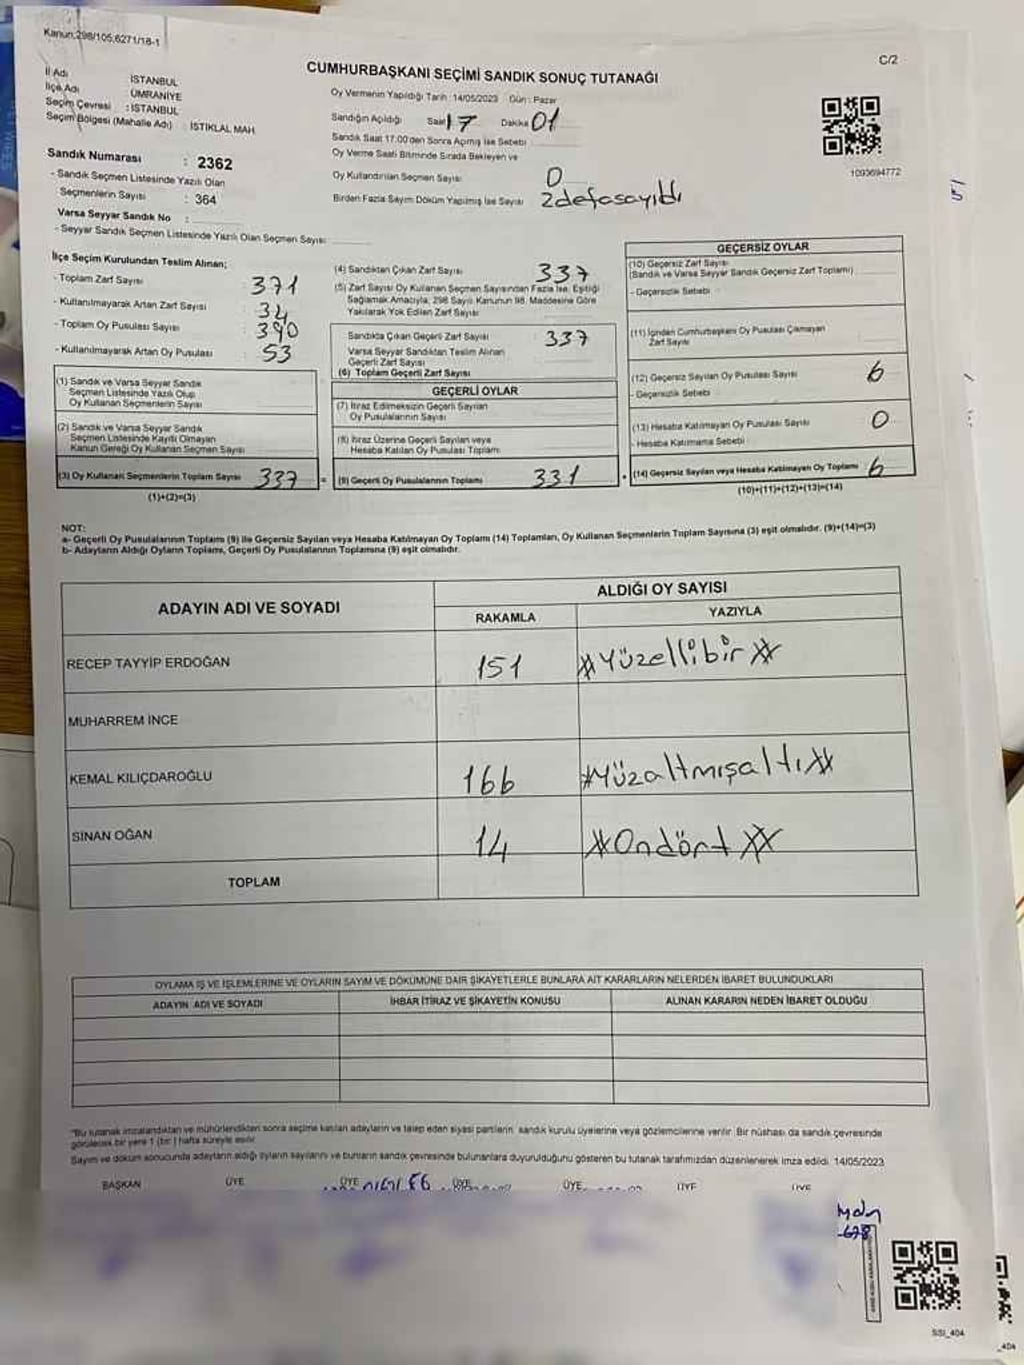 Kanun;298/105,6271/18-1
C/2
CUMHURBAŞKANI SEÇİMİ SANDIK SONUÇ TUTANAĞI
İl Adı İSTANBUL
İlçe Adı ÜMRANİYE
Seçim Çevresi : İSTANBUL
Seçim Bölgesi (Mahalle Adı) : İSTİKLAL MAH.
Oy Vermenin Yapıldığı Tarih : 14/05/2023 Gün : Pazar
Sandığın Açıldığı Saat 17 Dakika 01
Sandık Saat 17:00'den Sonra Açmış İse Sebebi
Oy Verme Saati Bitiminde Sırada Bekleyen ve
Oy Kullandırılan Seçmen Sayısı 0
Birden Fazla Sayım Döküm Yapılmış İse Sayısı 2 defa sayıldı
1093694772
Sandık Numarası : 2362
- Sandık Seçmen Listesinde Yazılı Olan
Seçmenlerin Sayısı : 364
Varsa Seyyar Sandık No :
- Seyyar Sandık Seçmen Listesinde Yazılı Olan Seçmen Sayısı
İlçe Seçim Kurulundan Teslim Alınan;
- Toplam Zarf Sayısı 371
- Kullanılmayarak Artan Zarf Sayısı : 34
- Toplam Oy Pusulası Sayısı : 390
- Kullanılmayarak Artan Oy Pusulası : 53
(1) Sandık ve Varsa Seyyar Sandık
Seçmen Listesinde Yazılı Olup
Oy Kullanan Seçmenlerin Sayısı
(2) Sandık ve Varsa Seyyar Sandık
Seçmen Listesinde Kayıtlı Olmayan
Kanun Gereği Oy Kullanan Seçmen Sayısı
(3) Oy Kullanan Seçmenlerin Toplam Sayısı 337
(1)+(2)=(3)
(4) Sandıktan Çıkan Zarf Sayısı 337
(5) Zarf Sayısı Oy Kullanan Seçmen Sayısından Fazla İse, Eşitliği
Sağlamak Amacıyla; 298 Sayılı Kanunun 98. Maddesine Göre
Yakılarak Yok Edilen Zarf Sayısı
Sandıkta Çıkan Geçerli Zarf Sayısı 337
Varsa Seyyar Sandıktan Teslim Alınan
Geçerli Zarf Sayısı
(6) Toplam Geçerli Zarf Sayısı
GEÇERLİ OYLAR
(7) İtiraz Edilmeksizin Geçerli Sayılan
Oy Pusulalarının Sayısı
(8) İtiraz Üzerine Geçerli Sayılan veya
Hesaba Katılan Oy Pusulası Toplamı
= (9) Geçerli Oy Pusulalarının Toplamı 331 +
GEÇERSİZ OYLAR
(10) Geçersiz Zarf Sayısı
(Sandık ve Varsa Seyyar Sandık Geçersiz Zarf Toplamı)
- Geçersizlik Sebebi
(11) İçinden Cumhurbaşkanı Oy Pusulası Çıkmayan
Zarf Sayısı
(12) Geçersiz Sayılan Oy Pusulası Sayısı 6
- Geçersizlik Sebebi
(13) Hesaba Katılmayan Oy Pusulası Sayısı 0
- Hesaba Katılmama Sebebi
(14) Geçersiz Sayılan veya Hesaba Katılmayan Oy Toplamı 6
(10)+(11)+(12)+(13)=(14)
NOT:
a- Geçerli Oy Pusulalarının Toplamı (9) ile Geçersiz Sayılan veya Hesaba Katılmayan Oy Toplamı (14) Toplamları, Oy Kullanan Seçmenlerin Toplam Sayısına (3) eşit olmalıdır. (9)+(14)=(3)
b- Adayların Aldığı Oyların Toplamı, Geçerli Oy Pusulalarının Toplamına (9) eşit olmalıdır.
ADAYIN ADI VE SOYADI
ALDIĞI OY SAYISI
RAKAMLA YAZIYLA
RECEP TAYYİP ERDOĞAN 151 #Yüzellibir##
MUHARREM İNCE
KEMAL KILIÇDAROĞLU 166 #Yüzaltmışaltı##
SİNAN OĞAN 14 #Ondört##
TOPLAM
OYLAMA İŞ VE İŞLEMLERİNE VE OYLARIN SAYIM VE DÖKÜMÜNE DAİR ŞİKAYETLERLE BUNLARA AİT KARARLARIN NELERDEN İBARET BULUNDUKLARI
ADAYIN ADI VE SOYADI İHBAR İTİRAZ VE ŞİKAYETİN KONUSU ALINAN KARARIN NEDEN İBARET OLDUĞU
"Bu tutanak imzalandıktan ve mühürlendikten sonra seçime katılan adayların ve talep eden siyasi partilerin, sandık kurulu üyelerine veya gözlemcilerine verilir. Bir nüshası da sandık çevresinde
görülecek bir yere 1 (bir) hafta süreyle asılır.
Sayım ve döküm sonucunda adayların aldığı oyların sayılarını ve bunların sandık çevresinde bulunanlara duyurulduğunu gösteren bu tutanak tarafımızdan düzenlenerek imza edildi. 14/05/2023
BAŞKAN ÜYE ÜYE ÜYE ÜYE ÜYE
SSI_404
_404